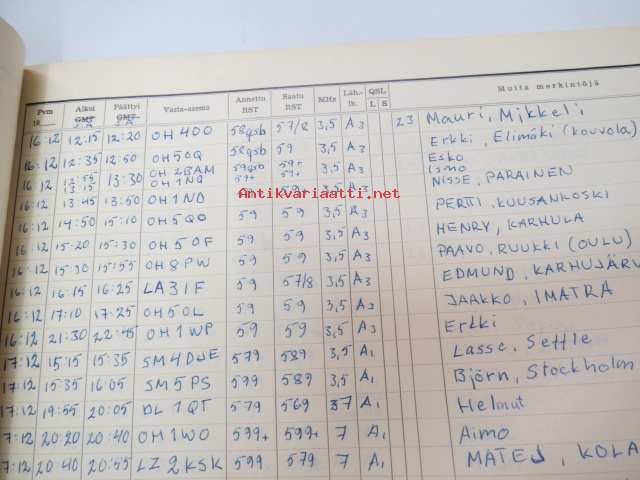 Pvm 19 Alkoi GMT Päättyi GMT Vasta-asema Annettu RST Saatu RST MHz Läh.-lk. QSL L S Muita merkintöjä
16:12 12:15 12:20 OH4OO 58qsb 57/8 3,5 A3 23 Mauri, Mikkeli
16:12 12:35 12:50 OH5OQ 58qsb 59 3,5 A3 Erkki, Elimäki (kouvola)
Esko
16:12 12:55 13:30 OH2BAM 59qsb 59+ 3,5 A3 Ismo
13:15 OH1NQ 59+ NISSE, PARAINEN
16:12 13:45 13:50 OH1ND 59+ A3 PERTTI, KUUSANKOSKI
16:12 14:50 15:10 OH5QO 59 59 3,5 A3 HENRY, KARHULA
16:12 15:20 15:30 OH5OF 59 59 3,5 A3 PAAVO, RUUKKI (OULU)
16:12 15:30 15:55 OH8PW 59 59 3,5 A3 EDMUND, KARHUJÄRV
16:12 16:15 16:25 LA3IF 59 57/8 3,5 A3 JAAKKO, IMATRA
16:12 17:10 17:25 OH5OL 59 59 3,5 A3 Erkki
16:12 21:30 22:45 OH1WP 59 59 3,5 A3 Lasse, Settle
17:12 15:15 15:35 SM4DWE 579 589 3,5 A1 Björn, Stockholm
17:12 15:35 16:05 SM5PS 599 589 3,5 A1 Helmut
17:12 19:55 20:05 DL1QT 579 569 37 A1 Aimo
7:12 20:20 20:40 OH1WO 599+ 599+ 7 A1 MATEJ, KOLA
7:12 20:40 20:55 LZ2KSK 599 579 7 A1
Antikvariaatti.net